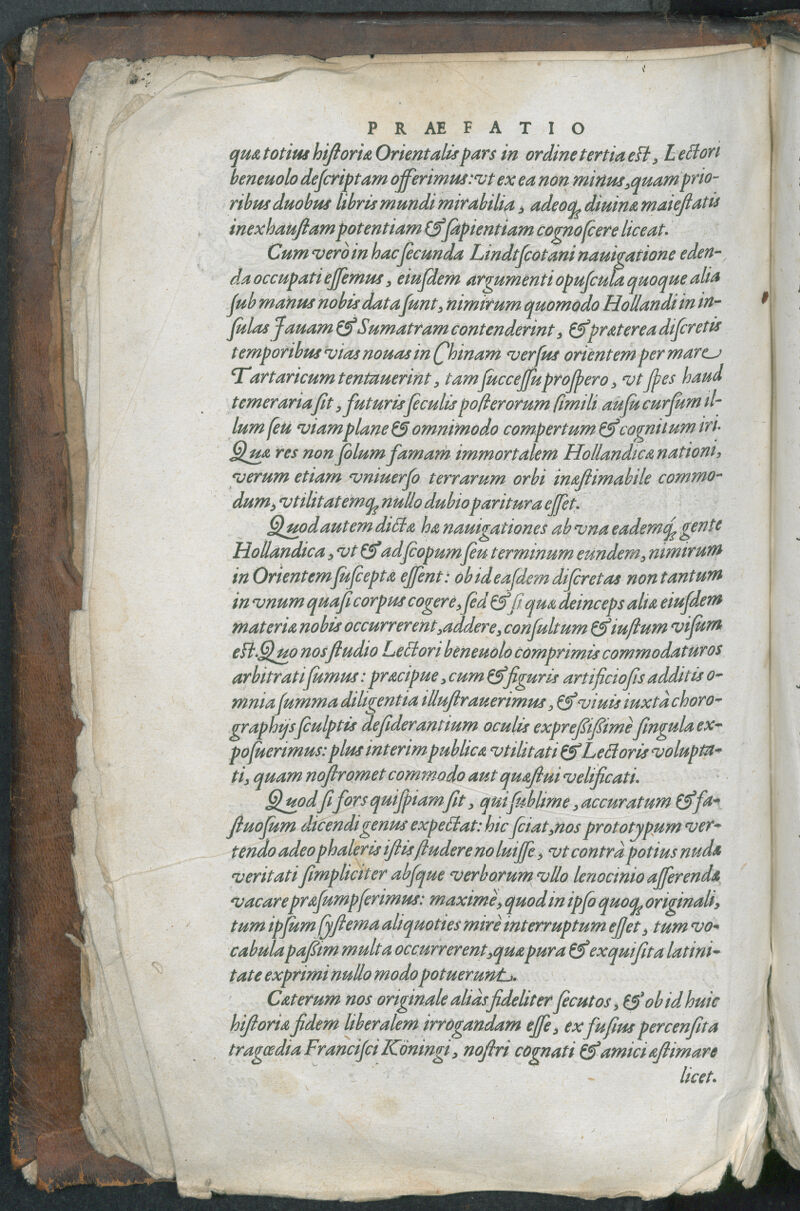 PRÆFATIO
quæ totius historiæ Orientalis pars in ordine tertia est, Lectori
beneuolo descriptam offerimus: vt ex ea non minus, quam prio-
ribus duobus libris mundi mirabilia, adeoq; diuinæ maiestatis
inexhaustam potentiam & sapientiam cognoscere liceat.
Cum verò in hac secunda Lindtscotani nauigatione eden-
da occupati essemus, eiusdem argumenti opuscula quoque alia
sub manus nobis data sunt, nimirum quomodo Hollandi in in-
sulas Jauam & Sumatram contenderint, & præterea discretis
temporibus vias nouas in Chinam versus orientem per mare
Tartaricum tentauerint, tam successu prospero, vt spes haud
temeraria sit, futuris seculis posterorum simili ausu cursum il-
lum seu viam plane & omnimodo compertum & cognitum iri.
Quæ res non solum famam immortalem Hollandicæ nationi,
verum etiam vniuerso terrarum orbi inæstimabile commo-
dum, vtilitatemq; nullo dubio paritura esset.
Quod autem dictæ hæ nauigationes ab vna eademq́; gente
Hollandica, vt & ad scopum seu terminum eundem, nimirum
in Orientem susceptæ essent: ob id easdem discretas non tantum
in vnum quasi corpus cogere, sed & si quæ deinceps aliæ eiusdem
materiæ nobis occurrerent, addere, consultum & iustum visum
est. Quo nos studio Lectori beneuolo comprimis commodaturos
arbitrati sumus: præcipue, cum & figuris artificiosis additis o-
mnia summa diligentia illustrauerimus, & viuis iuxtà choro-
graphijs sculptis desiderantium oculis expreßißimè singula ex-
posuerimus: plus interim publicæ vtilitati & Lectoris volupta-
ti, quam nostromet commodo aut quæstui velificati.
Quod si fors quispiam sit, qui sublime, accuratum & fa-
stuosum dicendi genus expectat: hic sciat, nos prototypum ver-
tendo adeo phaleris istis studere noluisse, vt contrà potius nudæ
veritati simpliciter absque verborum vllo lenocinio asserendæ
vacare præsumpserimus: maximè, quod in ipso quoq; originali,
tum ipsum systema aliquoties mirè interruptum esset, tum vo-
cabula paßim multa occurrerent, quæ pura & exquisita latini-
tate exprimi nullo modo potuerunt.
Cæterum nos originale aliàs fideliter secutos, & ob id huic
historiæ fidem liberalem irrogandam esse, ex fusius percensita
tragœdia Francisci Köningi, nostri cognati & amici æstimare
licet.